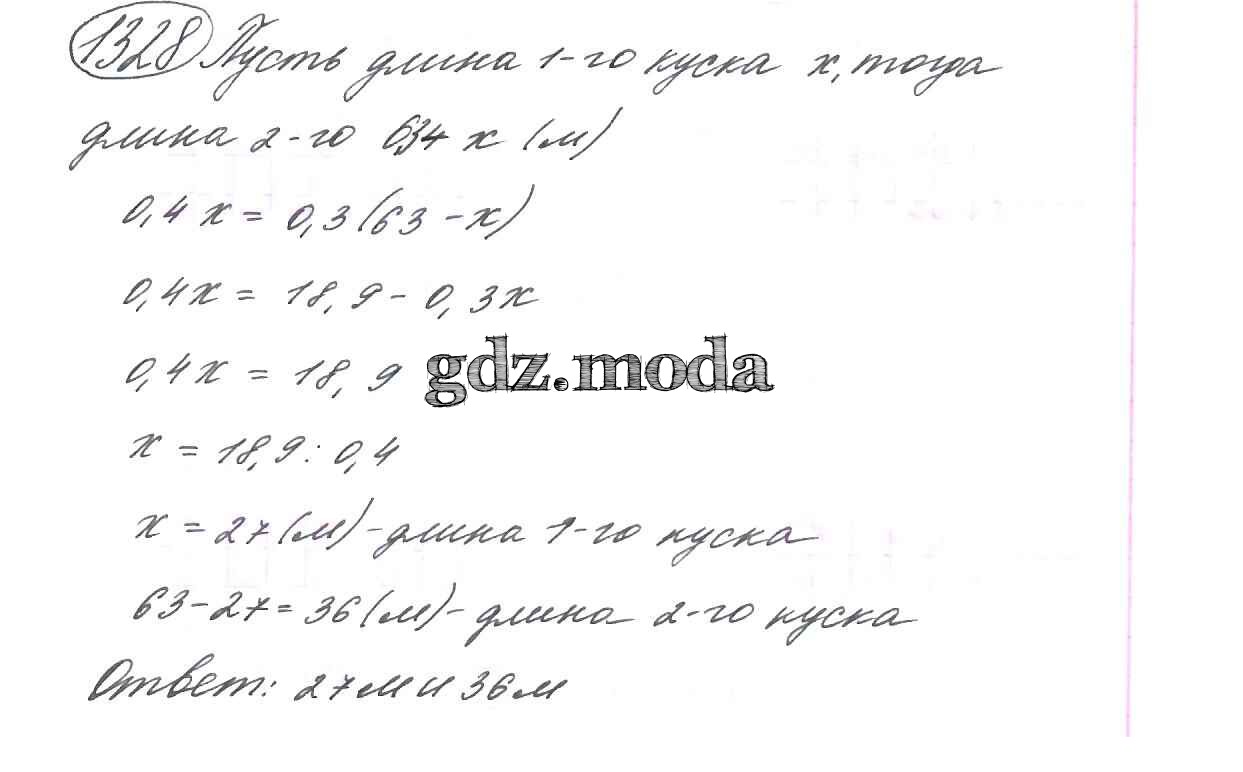 1328 Пусть длина 1-го куска х, тогда
длина 2-го 634 х (м)
0,4х = 0,3(63 - х)
0,4х = 18,9 - 0,3х
0,4х = 18,9
gdz.moda
х = 18,9 : 0,4
х = 27(м) - длина 1-го куска
63 - 27 = 36(м) - длина 2-го куска
Ответ: 27м и 36м